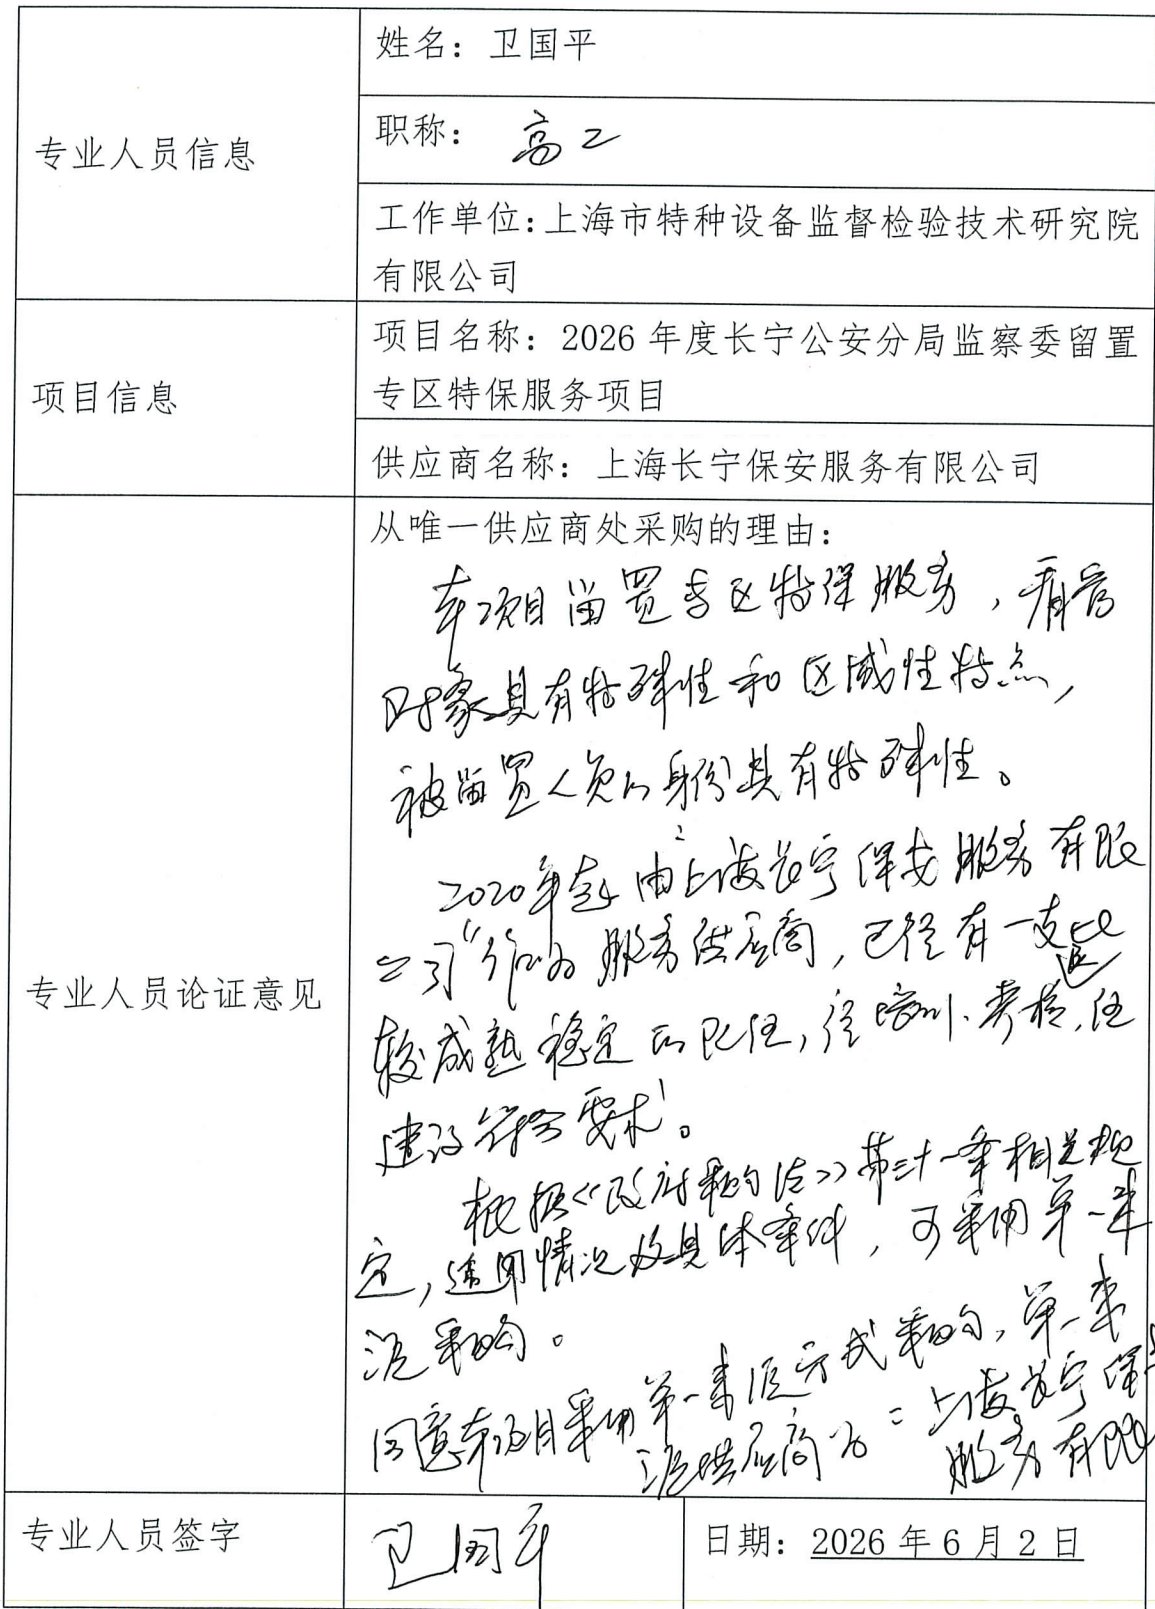 专业人员信息
姓名：卫国平
职称：高工
工作单位:上海市特种设备监督检验技术研究院
有限公司
项目信息
项目名称：2026 年度长宁公安分局监察委留置
专区特保服务项目
供应商名称：上海长宁保安服务有限公司
专业人员论证意见
从唯一供应商处采购的理由：
本项目留置专区特保服务，看管
对象具有特殊性和区域性特点，
被留置人员的身份具有特殊性。
2020年起由上海长宁保安服务有限
公司作为服务供应商，已经有一支比
较成熟稳定的队伍，经培训、考核，伍
建设符合要求。
根据《政府采购法》第三十一条相关规
定，适用情况及具体条件，可采用单一来
源采购。
同意本项目采用单一来源方式采购，单一来
源供应商为：上海长宁保安
服务有限
专业人员签字
卫国平
日期：2026 年 6 月 2 日